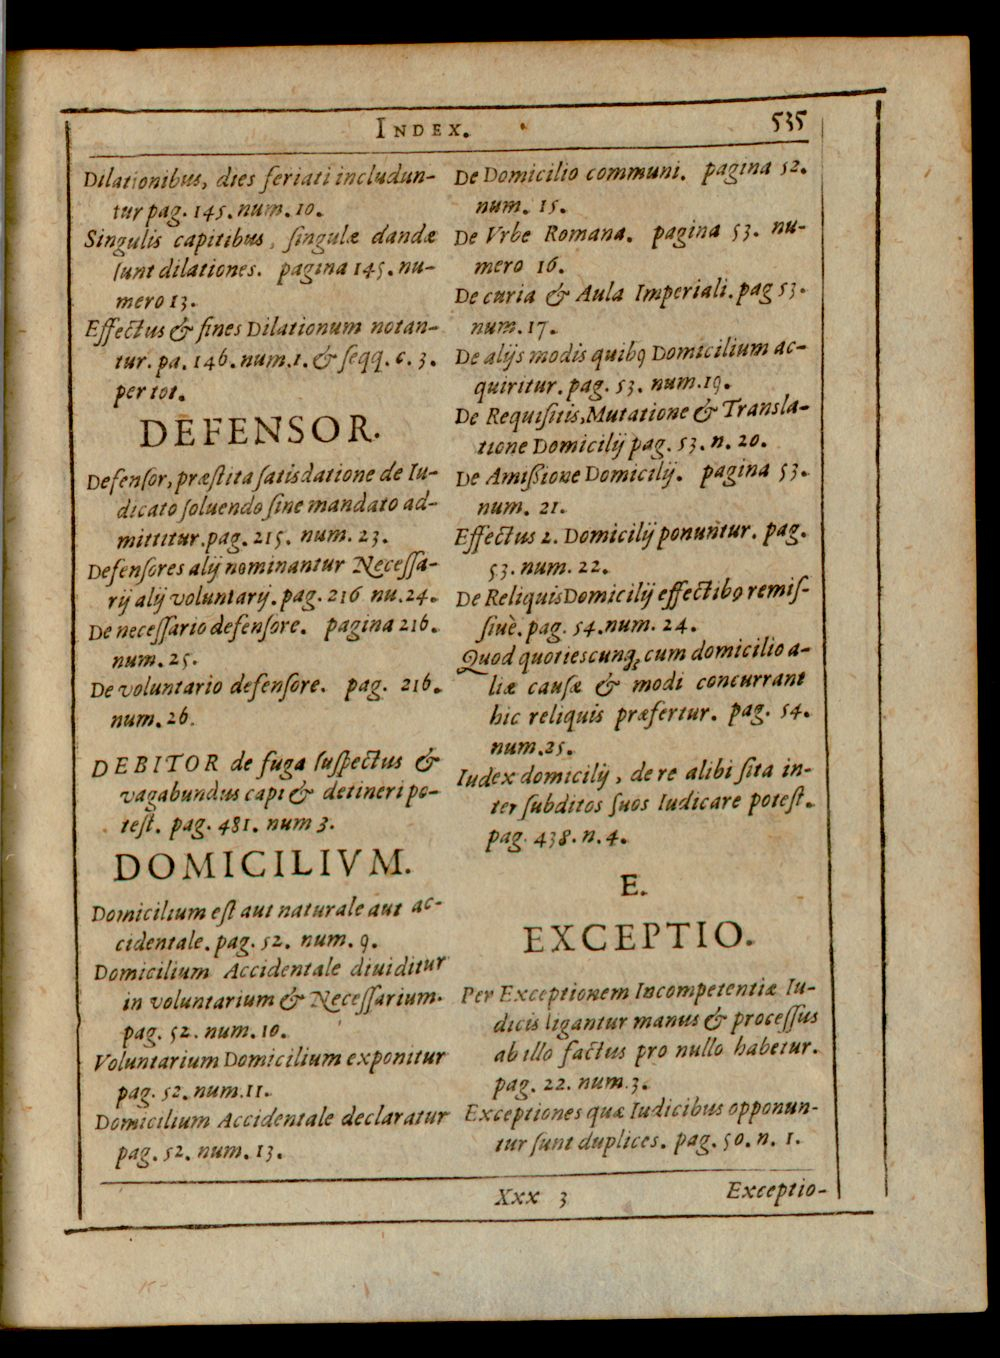 INDEX.
535
Dilationibus, dies feriati includun-
tur pag. 145. num. 10.
Singulis capitibus, singulæ dandæ
sunt dilationes. pagina 145. nu-
mero 13.
Effectus & fines Dilationum notan-
tur. pa. 146. num. 1. & seqq. c. 3.
per tot.
DEFENSOR.
Defensor, præstita satisdatione de Iu-
dicato soluendo sine mandato ad-
mittitur. pag. 215. num. 23.
Defensores alij nominantur Necessa-
rij alij voluntarij. pag. 216 nu. 24.
De necessario defensore. pagina 216.
num. 25.
De voluntario defensore. pag. 216.
num. 26.
DEBITOR de fuga suspectus &
vagabundus capi & detineri po-
test. pag. 481. num 3.
DOMICILIVM.
Domicilium est aut naturale aut ac-
cidentale. pag. 52. num. 9.
Domicilium Accidentale diuiditur
in voluntarium & Necessarium.
pag. 52. num. 10.
Voluntarium Domicilium exponitur
pag. 52. num. 11.
Domicilium Accidentale declaratur
pag. 52. num. 13.
De Domicilio communi. pagina 52.
num. 15.
De Vrbe Romana. pagina 53. nu-
mero 16.
De curia & Aula Imperiali. pag 53.
num. 17.
De alijs modis quibꝰ Domicilium ac-
quiritur. pag. 53. num. 19.
De Requisitis, Mutatione & Transla-
tione Domicilij pag. 53. n. 20.
De Amißione Domicilij. pagina 53.
num. 21.
Effectus 2. Domicilij ponuntur. pag.
53. num. 22.
De Reliquis Domicilij effectibꝰ remis-
siuè. pag. 54. num. 24.
Quod quotiescunq; cum domicilio a-
liæ causæ & modi concurrant
hic reliquis præfertur. pag. 54.
num. 25.
Iudex domicilij, de re alibi sita in-
ter subditos suos Iudicare potest.
pag. 438. n. 4.
E.
EXCEPTIO.
Per Exceptionem Incompetentiæ Iu-
dicis ligantur manus & processus
ab illo factus pro nullo habetur.
pag. 22. num. 3.
Exceptiones quæ Iudicibus opponun-
tur sunt duplices. pag. 50. n. 1.
Xxx 3
Exceptio-